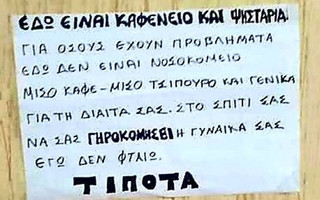 ΕΔΩ ΕΙΝΑΙ ΚΑΦΕΝΕΙΟ ΚΑΙ ΨΗΣΤΑΡΙΑ.
ΓΙΑ ΟΣΟΥΣ ΕΧΟΥΝ ΠΡΟΒΛΗΜΑΤΑ
ΕΔΩ ΔΕΝ ΕΙΝΑΙ ΝΟΣΟΚΟΜΕΙΟ
ΜΙΣΟ ΚΑΦΕ-ΜΙΣΟ ΤΣΙΠΟΥΡΟ ΚΑΙ ΓΕΝΙΚΑ
ΓΙΑ ΤΗ ΔΙΑΙΤΑ ΣΑΣ. ΣΤΟ ΣΠΙΤΙ ΣΑΣ
ΝΑ ΣΑΣ ΓΗΡΟΚΟΜΗΣΕΙ Η ΓΥΝΑΙΚΑ ΣΑΣ
ΕΓΩ ΔΕΝ ΦΤΑΙΩ.
ΤΙΠΟΤΑ